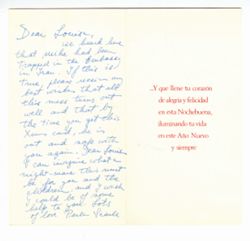 Dear Louisa,
we heard here
that Mike had been
trapped in the Embassy
in Iran. If this is
true, please receive my
best wishes that all
this mess turns out
well and that by
the time you get this
Xmas card, he is
out and safe with
you again. Dear Louisa
I can imagine what a
night-mare this must
be for you and the
children, and I wish
I could be of some
help to you. Lots
of love
...Y que llene tu corazón
de alegría y felicidad
en esta Nochebuena,
iluminando tu vida
en este Año Nuevo
y siempre